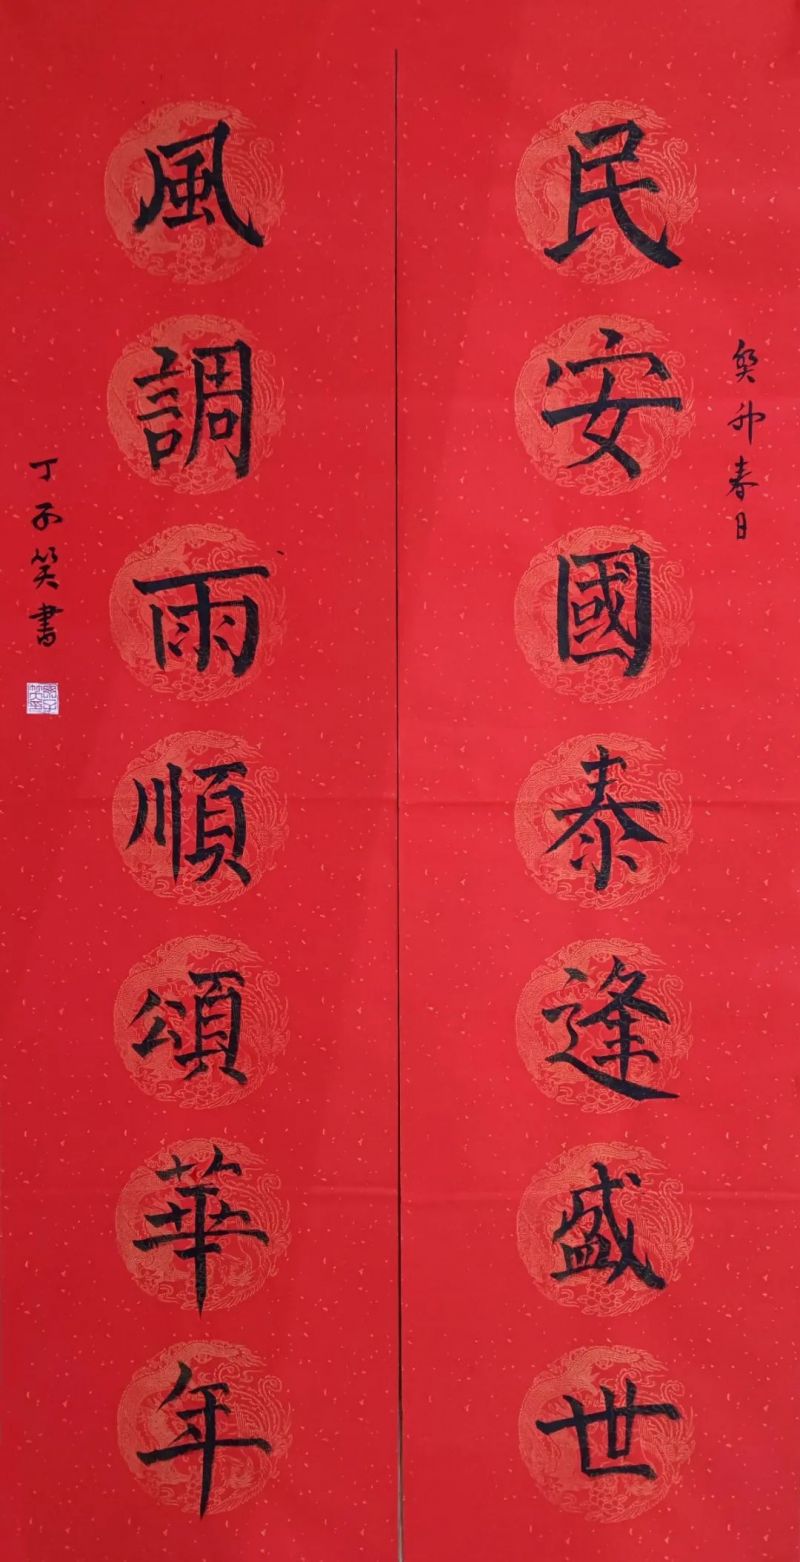 民安國泰逢盛世
癸卯春日
風調雨順頌華年
丁子笑書